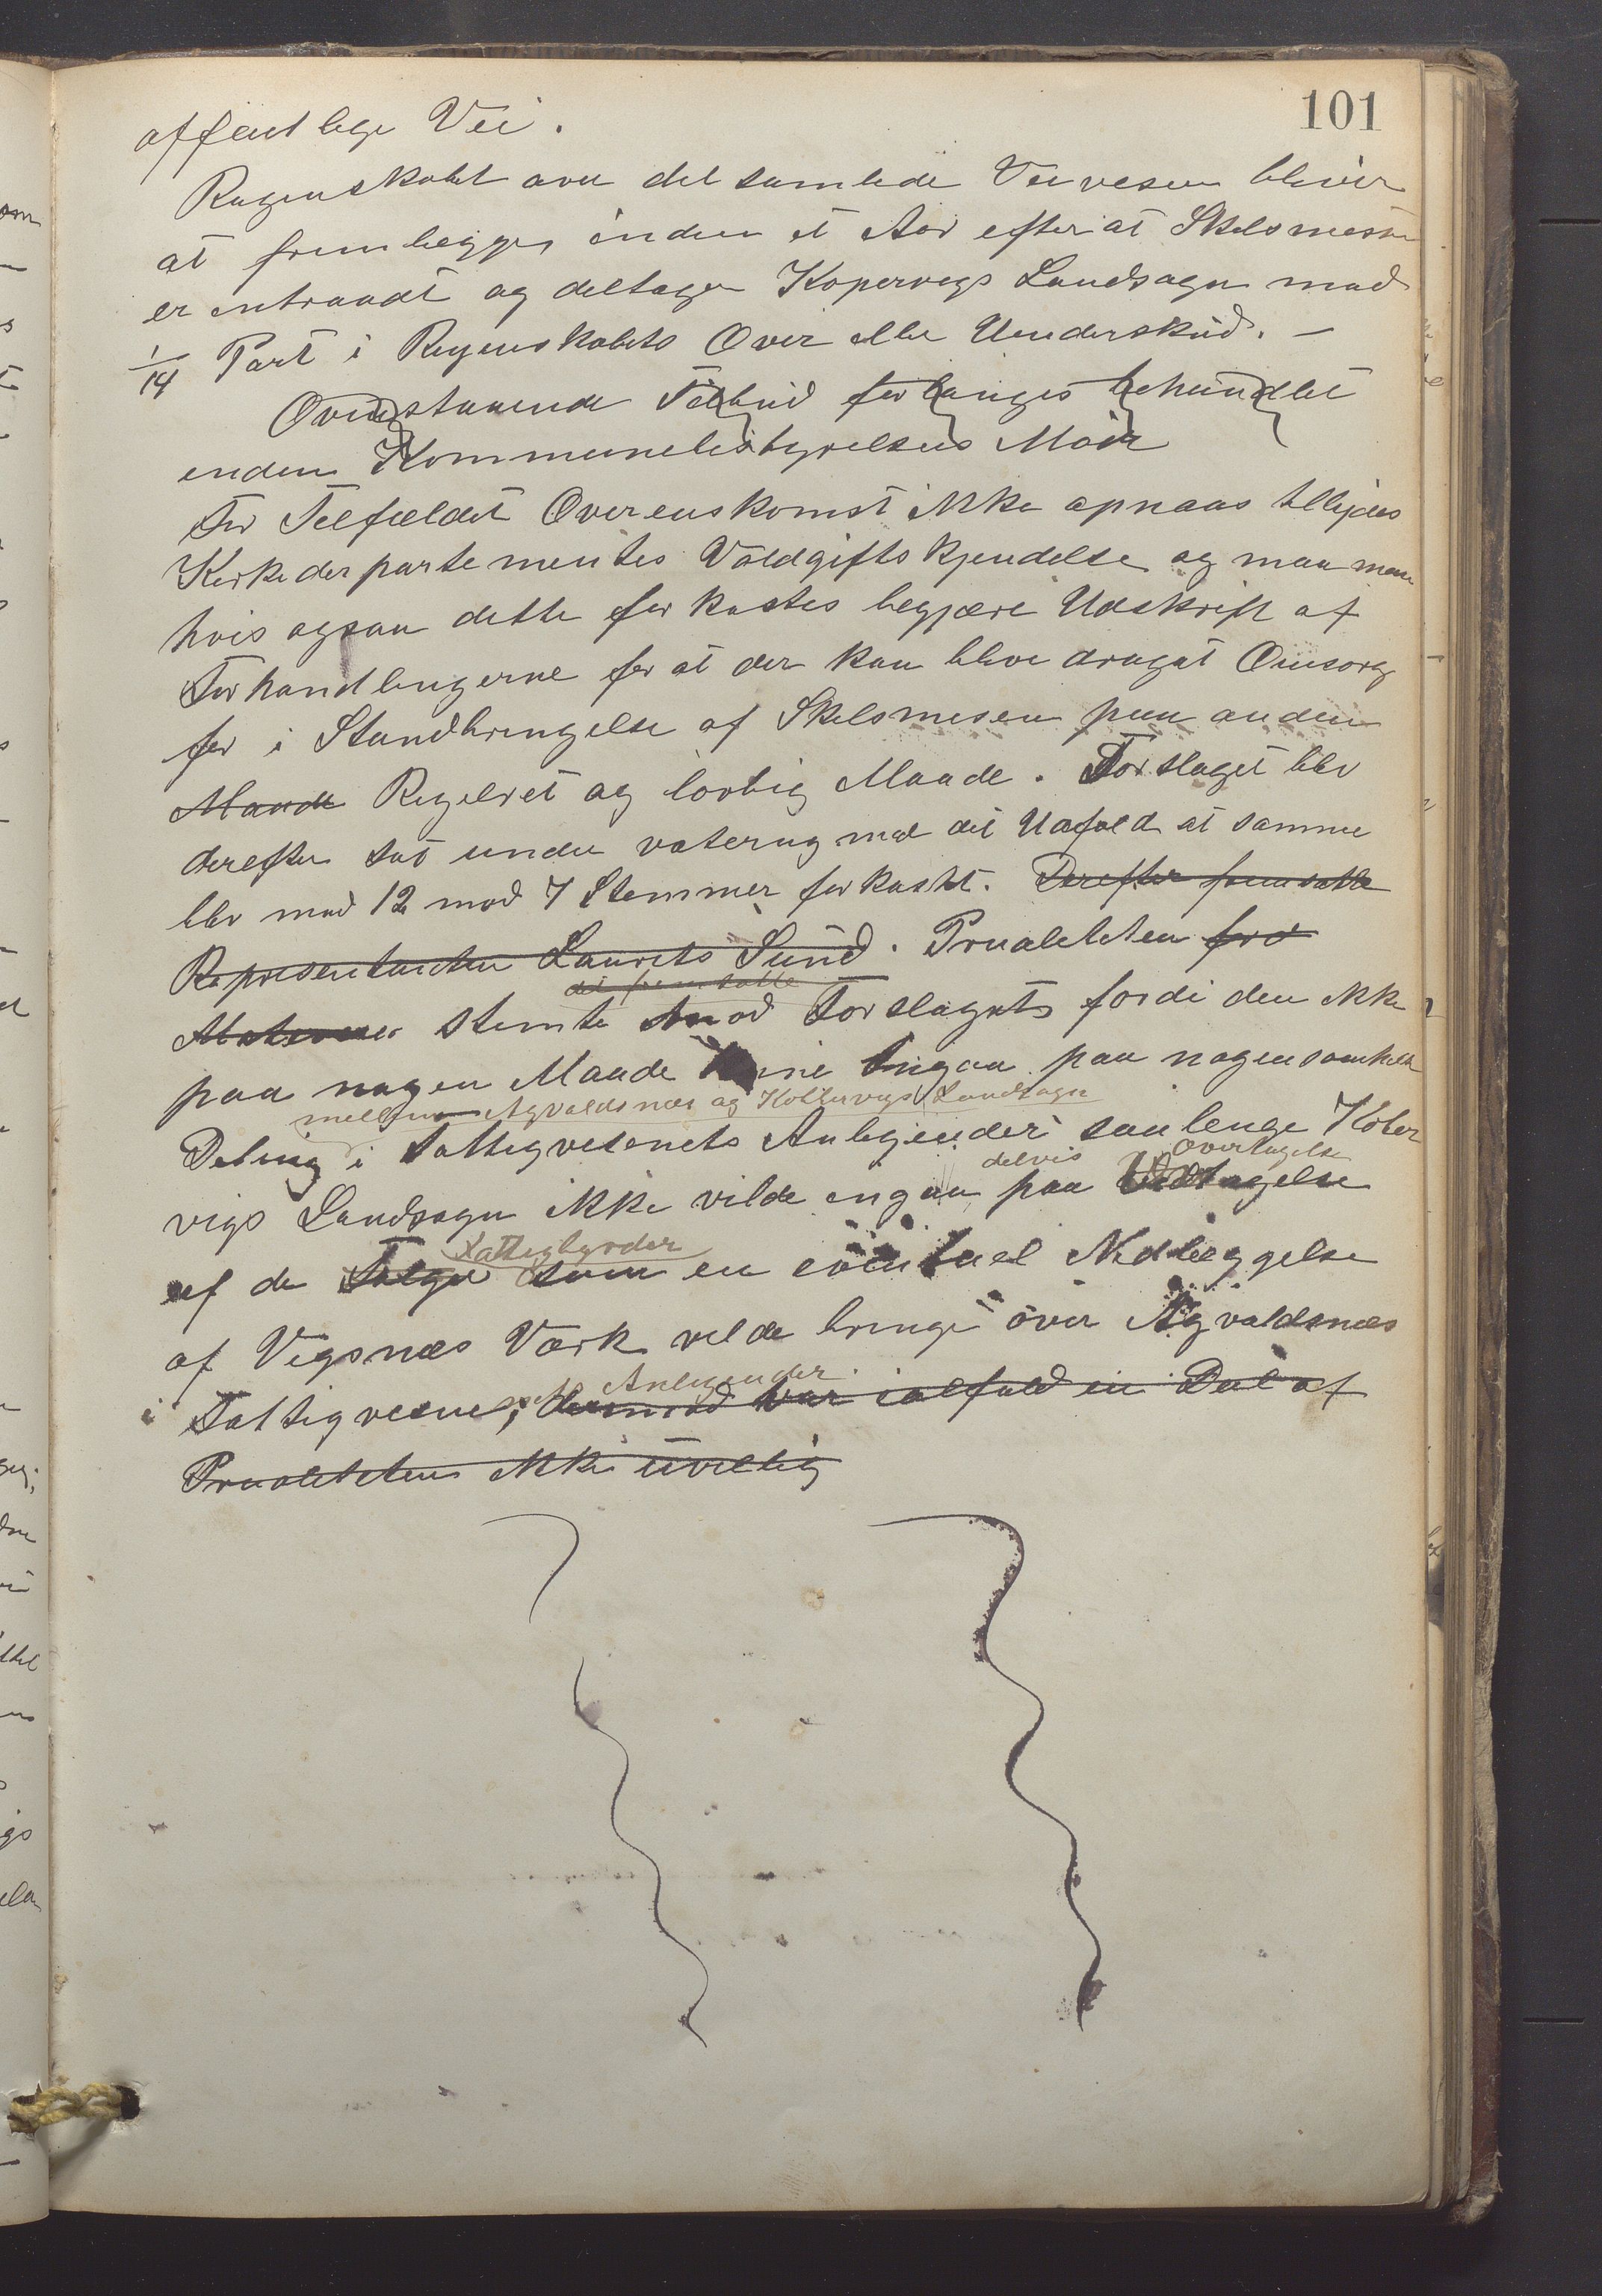 101
offentlige Vei.
Regenskabet over det samlede Veivesen bliver
at fremlegges inden et Aar efter at Skelsmessen
er intraadt og deltager Kopervigs Landsogn med
1/14 Part i Regenskabets Over eller Underskud. -
Ovenstaaende Tilbud forlanges behandlet
enden Kommunebestyrelsens Møde
For Telfældet Overenskomst ikke opnaas tilbydes
Kirkedepartementes Voldgiftskjendelse og maa man
hvis ogsaa dette forkastes begjære Udskrift af
Forhandlingerne for at der kan blive draget Omsorg
for i Standbringelse af Skelsmesen paa anden
Maade Regelret og lovlig Maade. Forslaget blev
derefter sat under votering med det Udfald at samme
blev med 12 mod 7 Stemmer forkastet. Derefter fremsatte
Representanten Laurits Sund. Pruraliteten
det fremsatte
stemte mod Forslagets fordi den ikke
paa nogen Maade ingaa paa nogensomhelst
mellem Agvaldsnes og Kobbervigs Landsogn
Deling i Fattigvesenets Anligender saalenge Kober
delvis Overtagelse
vigs Landsogn ikke vilde engaa paa Vedtagelse
Fattigbyrder
af de Følger som en eventuel Nedleggelse
af Vigsnæs Værk vilde bringe over Agvaldsnæs
Anligender
i Fattigvesne, dermod var ialfald en Del af
Pruraliteten ikke uvillig